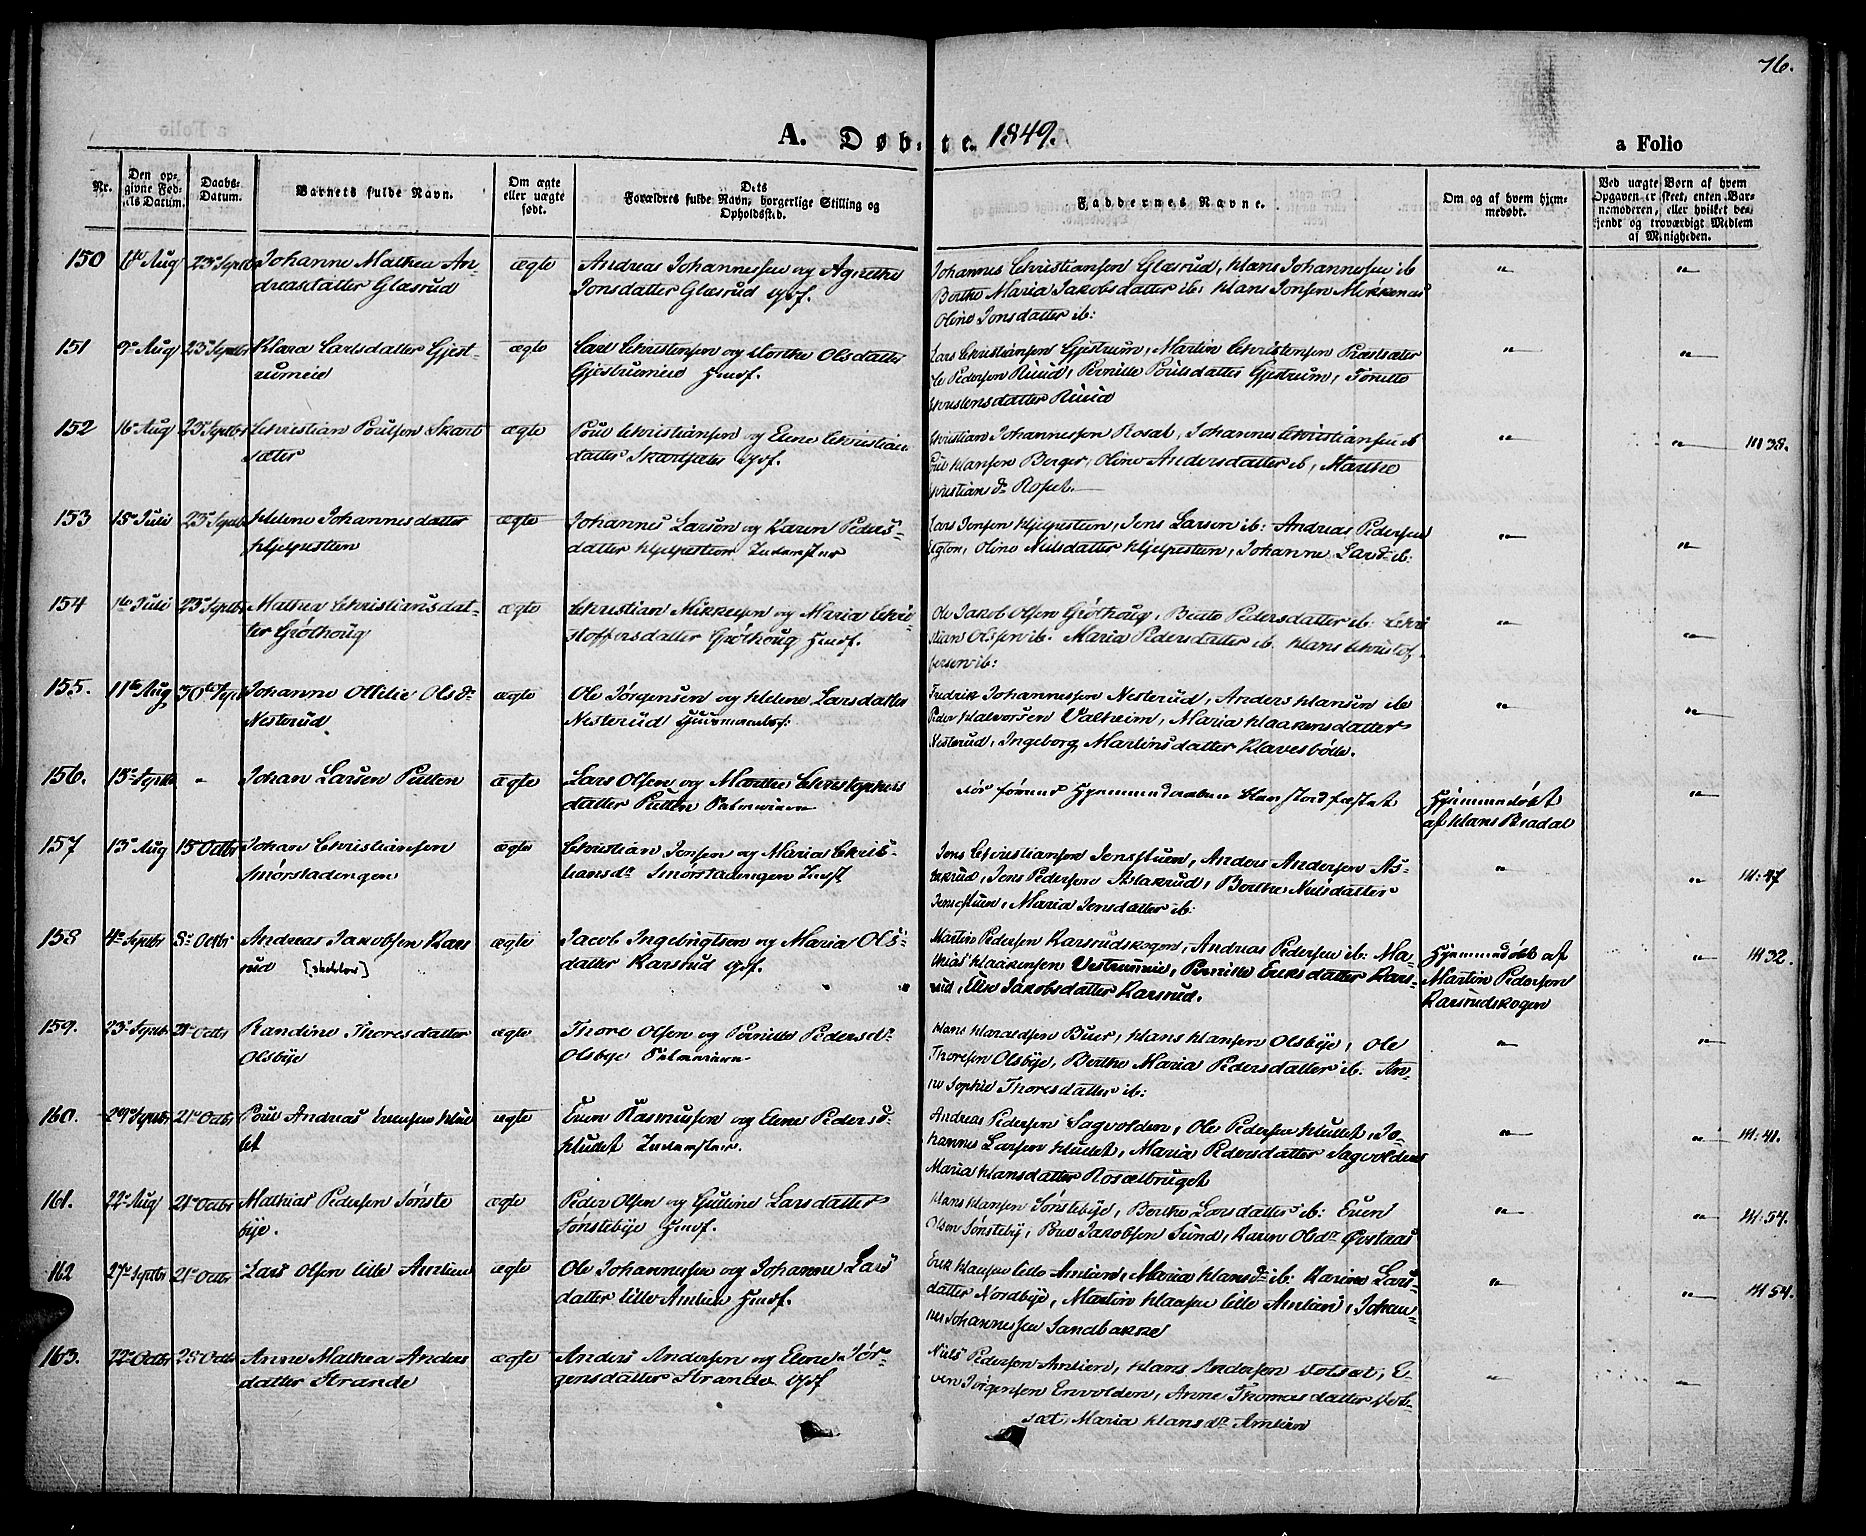 76.
A. Døbte. 1849.
a Folio
Nr.
Den op-
givne Fød-
sels Datum.
Daabs-
Datum.
Barnets fulde Navn.
Om ægte
eller uægte
født.
Dets
Forældres fulde Navn, borgerlige Stilling og
Opholdssted.
Faddernes Navne.
Om og af hvem hjem-
medøbt.
Ved uægte Børn af hvem
Opgaven er skeet, enten Bar-
nemoderen, eller hvilket be-
kjendt og troværdigt Medlem
af Menigheden.
150 6te Aug 23de Septbr Johanne Mathea An-
dreasdatter Glæsrud
ægte
Andreas Johannessen og Agnethe
Jonsdatter Glæsrud
Johannes Christiansen Glæsrud, Hans Johannessen ib
Berthe Maria Jakobsdatter ib: Hans Jonsen Mikkenæs
Oline Jonsdatter ib:
151 9de Aug 23de Septbr Klara Carlsdatter Gjest-
rumeie
ægte
Carl Christensen og Marthe Olsdatter
Gjestrumeie Huusf.
Lars Christiansen Gjestrum, Martin Christensen
Ole Pedersen Ruud, Pernille Poulsdatter Gjestrum, Tonette
Christensdatter Ruud
152 16de Aug 23de Septbr Christian Poulsen Skart-
sæter
ægte
Poul Christiansen og Elene Christians
datter Skartsæter
Christian Johannessen Rosæt, Johannes Christiansen ib
Poul Hansen Berger, Oline Andersdatter ib, Marthe
Christians dr Roset.
M 38.
153 15de Juli 23de Septbr Helene Johannesdatter
Hjelpestien
ægte
Johannes Larsen og Karen Peders-
datter Hjelpestien Inderster
Lars Jensen Hjelpestien, Jens Larsen ib: Andreas Pedersen
Oline Nilsdatter Hjelpestien, Johanne Larsdr ib:
154 1te Juli 23de Septbr Mathea Christiansdat-
ter Grøthoug
ægte
Christian Mikkelsen og Maria Chri-
stoffersdatter Grøthoug Huusf.
Ole Jakob Olsen Grøthoug, Beate Pedersdatter ib: Chri
stian Olsen ib: Maria Pedersdatter ib. Hans Christof-
fersen ib:
155. 11te Aug 30te Septbr Johanne Ottilie Olsdr
Nesterud
ægte
Ole Jørgensen og Helene Larsdatter
Nesterud Huusmandsf:
Fredrik Johannessen Nesterud, Anders Hansen ib
Peder Halvorsen Valheim, Maria Haakensdatter
Nesterud, Ingeborg Martinsdatter Klavesbølle.
156. 13de Septbr - Johan Larsen Putten
ægte
Lars Olsen og Marthe Christophers
datter Putten
før Hjemmedaaben
Hjemmedøbt
af Hans Bradal
157 13de Aug 15 Octbr Johan Christiansen
Smørstadengen
ægte
Christian Jensen og Maria Chris-
tiansdr Smørstadengen
Jens Christiansen Jensstuen, Anders Andersen As-
lakrud, Jens Pedersen Aslakrud, Berthe Nilsdatter
Jensstuen, Maria Jensdatter ib:
M: 47
158 4de Septbr 8de Octbr Andreas Jakobsen Kars
rud [skeblev]
ægte
Jacob Ingebrigtsen og Maria Ols-
datter Karsrud
Martin Pedersen Karsrudskogen, Andreas Pedersen ib: Ma-
thias Haakensen Vestrumeie, Pernille Eriksdatter Kars-
rud, Else Jakobsdatter Karsrud.
Hjemmedøbt af
Martin Pedersen
Karsrudskogen
M 32.
159. 23de Septbr 21de Octbr Randine Thoresdatter
Olsbye
ægte
Thore Olsen og Pernille Pedersdr
Olsbye
Hans Haraldsen Buer, Hans Hansen Olsbye, Ole
Thoresen Olsbye, Berthe Maria Pedersdatter ib: An-
ne Sophie Thoresdatter ib:
160. 29de Septbr 21de Octbr Poul Andreas Evensen Klul
let
ægte
Even Rasmussen og Elene Pedersdr
Klullet Inderster.
Andreas Pedersen Sagvolden, Ole Pedersen Klullet, Jo-
hannes Larsen Klullet, Maria Pedersdatter Sagvolden
Maria Hansdatter Rosætbruget
M: 41.
161. 22de Aug 21de Octbr Mathias Pedersen Sønste
bye.
ægte
Peder Olsen og Gulline Larsdatter
Sønstebye Huusf.
Hans Hansen Sønstebye, Berthe Larsdatter ib: Even
Olsen Sønsteby, Poul Jakobsen Sund, Karen Olsdr Øvstaas
M: 54.
162 27de Septbr 21de Octbr Lars Olsen lille Amlien
ægte
Ole Johannessen og Johanne Lars
datter lille Amlien Huusf.
Erik Hansen lille Amlien, Maria Hansdr ib: Karine Lars-
datter Nordbye, Martin Hansen lille Amlien, Johan-
nes Johannessen Sandbakke
M 54.
163. 22de Octbr 28de Octbr Anne Mathea Anders
datter Strande
ægte
Anders Andersen og Elene Jør-
gensdatter Strande
Niels Pedersen Amlien, Hans Andersen Volsæt, E-
ven Jørgensen Envolden, Anne Thomasdatter Vol-
sæt, Maria Hans dr Amlien